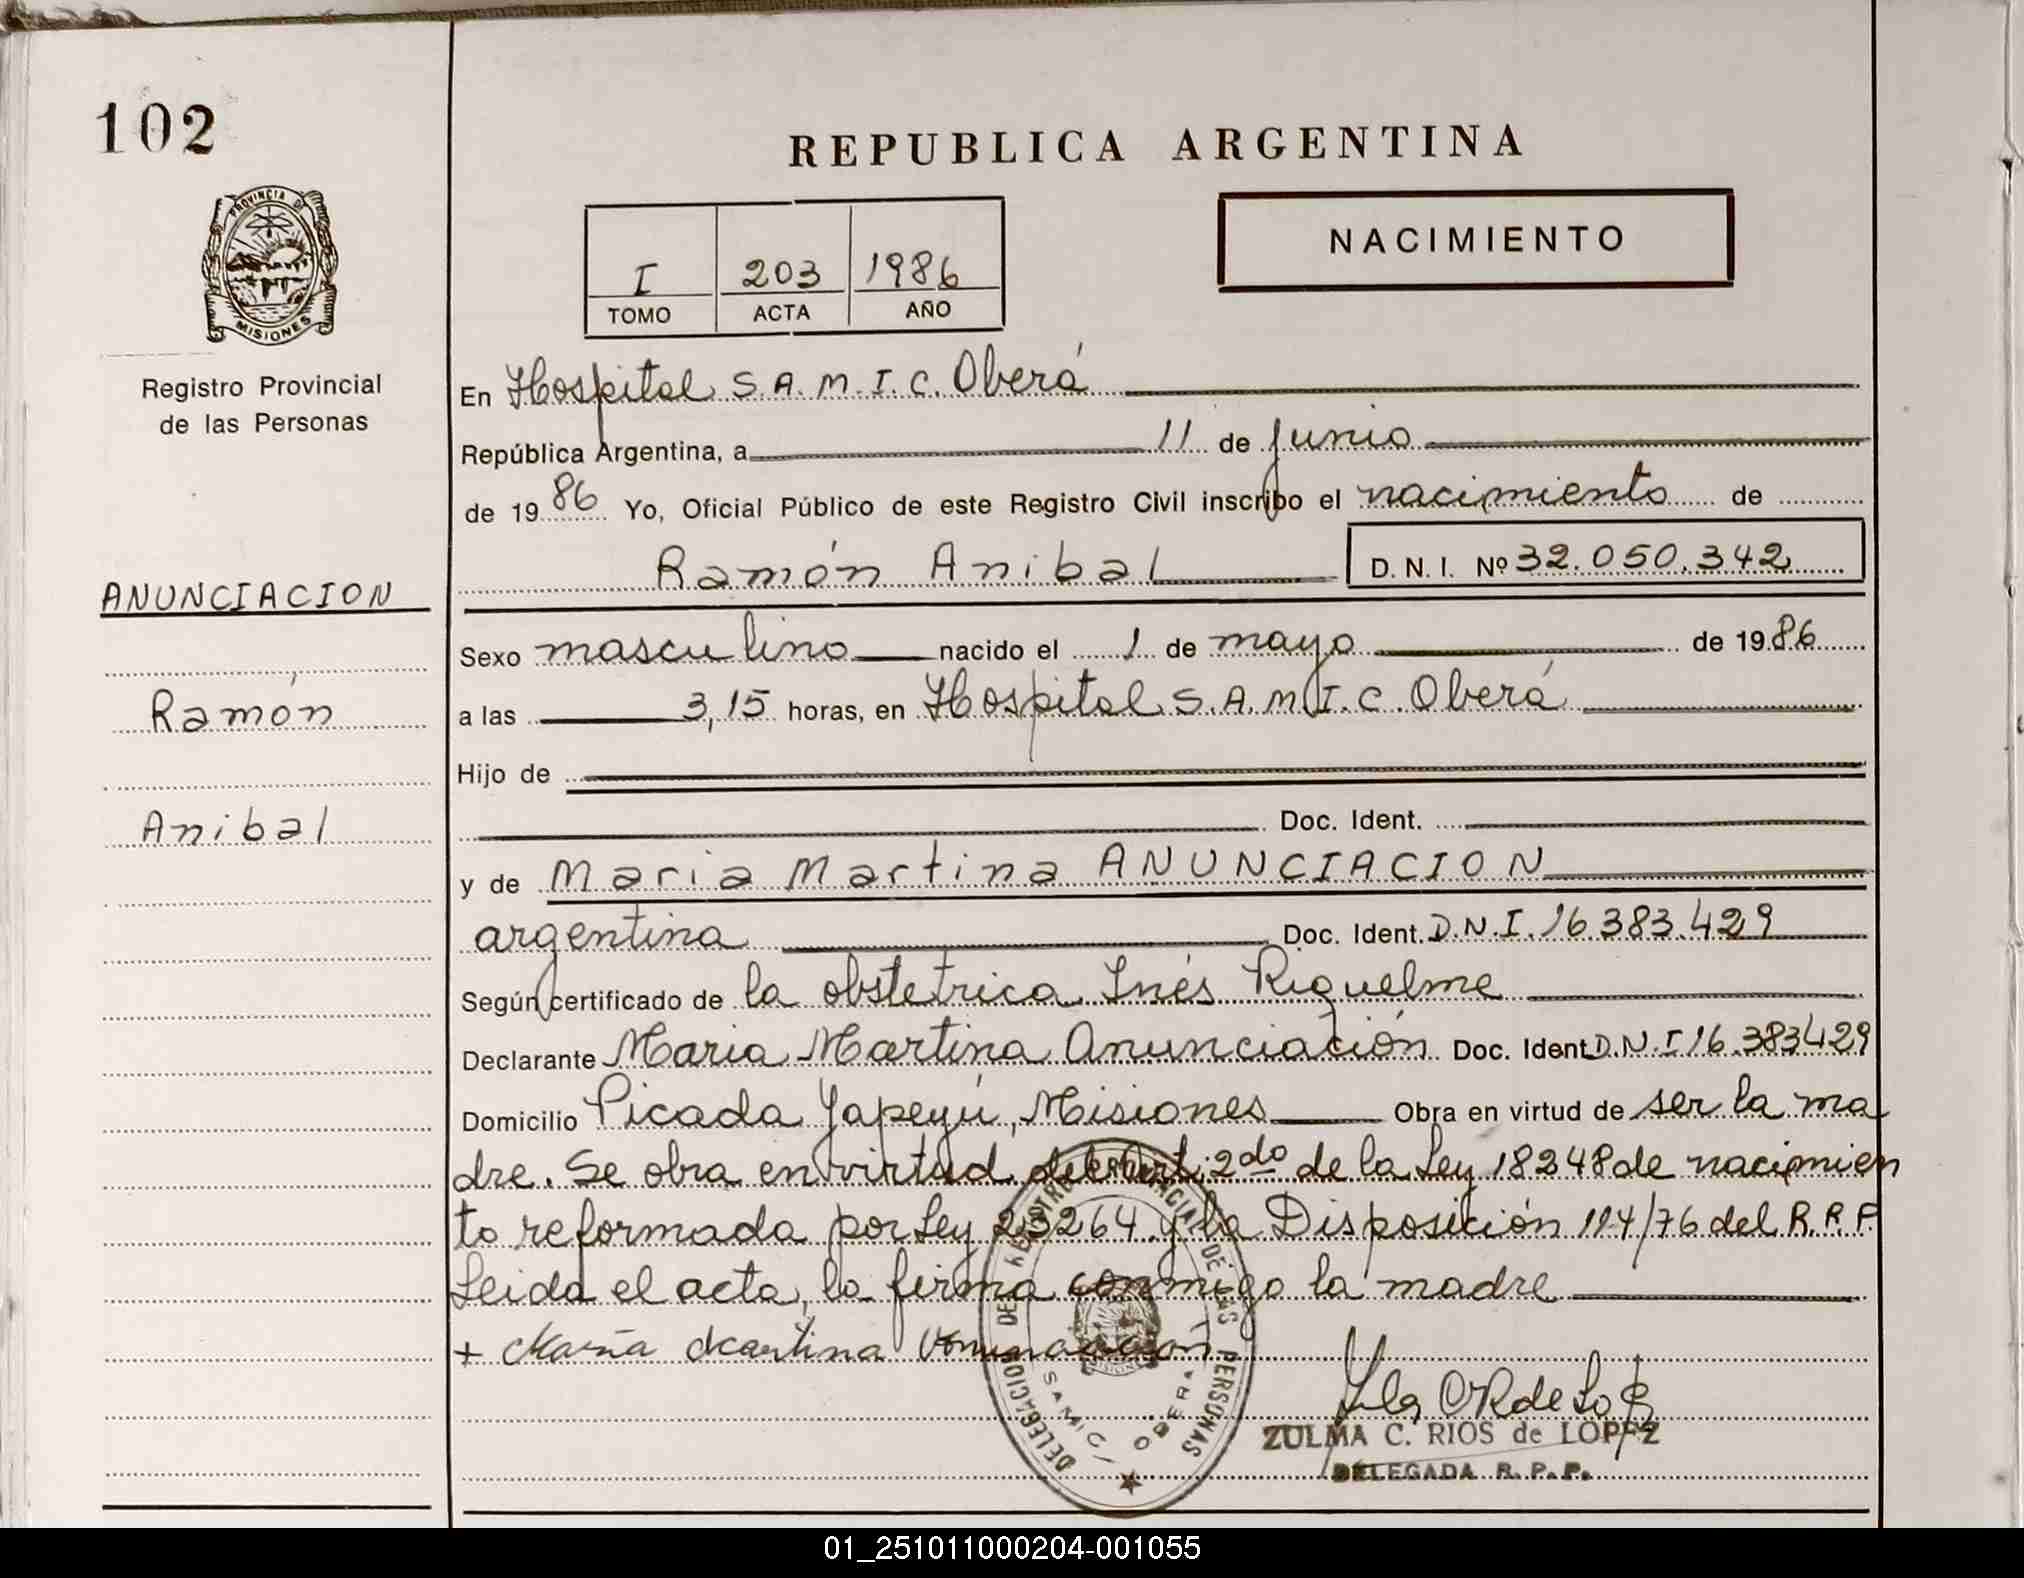 102
REPUBLICA ARGENTINA
PROVINCIA DE
MISIONES
Registro Provincial
de las Personas
I 203 1986
TOMO ACTA AÑO
NACIMIENTO
En Hospital S.A.M.I.C. Oberá
República Argentina, a 11 de junio
de 1986 Yo, Oficial Público de este Registro Civil inscribo el nacimiento de
Ramón Anibal D. N. I. Nº 32.050.342
ANUNCIACION
Ramón
Anibal
Sexo masculino nacido el 1 de mayo de 1986
a las 3,15 horas, en Hospital S.A.M.I.C. Oberá
Hijo de
Doc. Ident.
y de Maria Martina ANUNCIACION
argentina Doc. Ident. D.N.I. 16.383.429
Según certificado de la obstetrica Inés Riquelme
Declarante Maria Martina Anunciación Doc. Ident. D.N.I 16.383429
Domicilio Picada Yapeyú, Misiones Obra en virtud de ser la ma
dre. Se obra en virtud del Art. 2do de la Ley 18248 de nacimien
to reformada por Ley 23264 y la Disposición 114/76 del R.R.P.
Leida el acta, la firma conmigo la madre
+ Maria Martina Anunciación
DELEGACION DE REGISTRO PROVINCIAL DE LAS PERSONAS
SAMIC OBERA
ZULMA C. RIOS de LOPEZ
DELEGADA R. P. P.
01_251011000204-001055